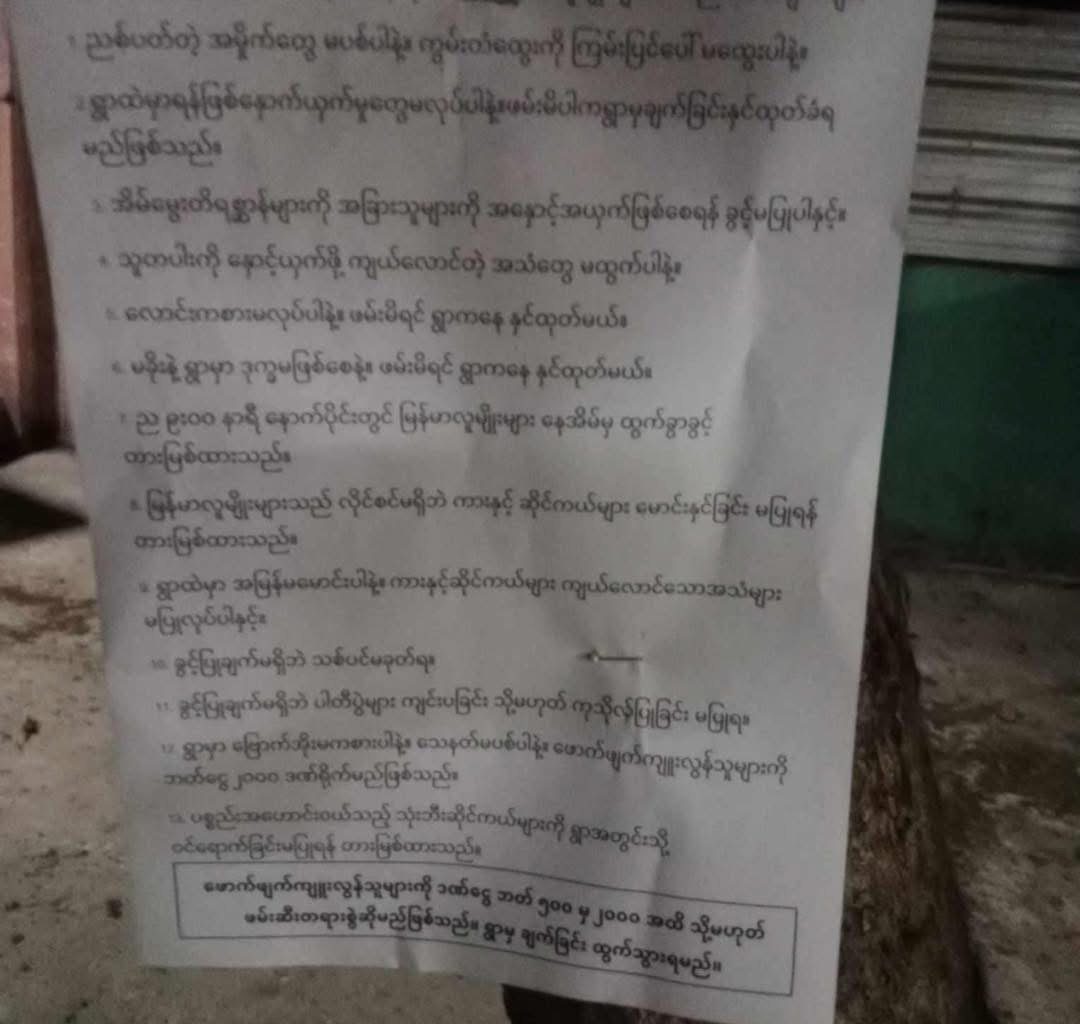 1. ညစ်ပတ်တဲ့ အမှိုက်တွေ မပစ်ပါနဲ့။ ကွမ်းတံထွေးကို ကြမ်းပြင်ပေါ် မထွေးပါနဲ့။
2. ရွာထဲမှာရန်ဖြစ်နှောက်ယှက်မှုတွေမလုပ်ပါနဲ့။ဖမ်းမိပါကရွာမှချက်ခြင်းနှင်ထုတ်ခံရ
မည်ဖြစ်သည်။
3. အိမ်မွေးတိရစ္ဆာန်များကို အခြားသူများကို အနှောင့်အယှက်ဖြစ်စေရန် ခွင့်မပြုပါနှင့်။
4. သူတပါးကို နှောင့်ယှက်ဖို့ ကျယ်လောင်တဲ့ အသံတွေ မထွက်ပါနဲ့။
5. လောင်းကစားမလုပ်ပါနဲ့။ ဖမ်းမိရင် ရွာကနေ နှင်ထုတ်မယ်။
6. မခိုးနဲ့ ရွာမှာ ဒုက္ခမဖြစ်စေနဲ့။ ဖမ်းမိရင် ရွာကနေ နှင်ထုတ်မယ်။
7. ည ၉း၀၀ နာရီ နောက်ပိုင်းတွင် မြန်မာလူမျိုးများ နေအိမ်မှ ထွက်ခွာခွင့်
တားမြစ်ထားသည်။
8. မြန်မာလူမျိုးများသည် လိုင်စင်မရှိဘဲ ကားနှင့် ဆိုင်ကယ်များ မောင်းနှင်ခြင်း မပြုရန်
တားမြစ်ထားသည်။
9. ရွာထဲမှာ အမြန်မမောင်းပါနဲ့။ ကားနှင့်ဆိုင်ကယ်များ ကျယ်လောင်သောအသံများ
မပြုလုပ်ပါနှင့်။
10. ခွင့်ပြုချက်မရှိဘဲ သစ်ပင်မခုတ်ရ။
11. ခွင့်ပြုချက်မရှိဘဲ ပါတီပွဲများ ကျင်းပခြင်း သို့မဟုတ် ကုသိုလ်ပြုခြင်း မပြုရ။
12. ရွာမှာ ဗြောက်အိုးမကစားပါနဲ့။ သေနတ်မပစ်ပါနဲ့။ ဖောက်ဖျက်ကျူးလွန်သူများကို
ဘတ်ငွေ ၂၀၀၀ ဒဏ်ရိုက်မည်ဖြစ်သည်။
13. ပစ္စည်းအဟောင်းဝယ်သည့် သုံးဘီးဆိုင်ကယ်များကို ရွာအတွင်းသို့
ဝင်ရောက်ခြင်းမပြုရန် တားမြစ်ထားသည်။
ဖောက်ဖျက်ကျူးလွန်သူများကို ဒဏ်ငွေ ဘတ် ၅၀၀ မှ ၂၀၀၀ အထိ သို့မဟုတ်
ဖမ်းဆီးတရားစွဲဆိုမည်ဖြစ်သည်။ ရွာမှ ချက်ခြင်း ထွက်သွားရမည်။